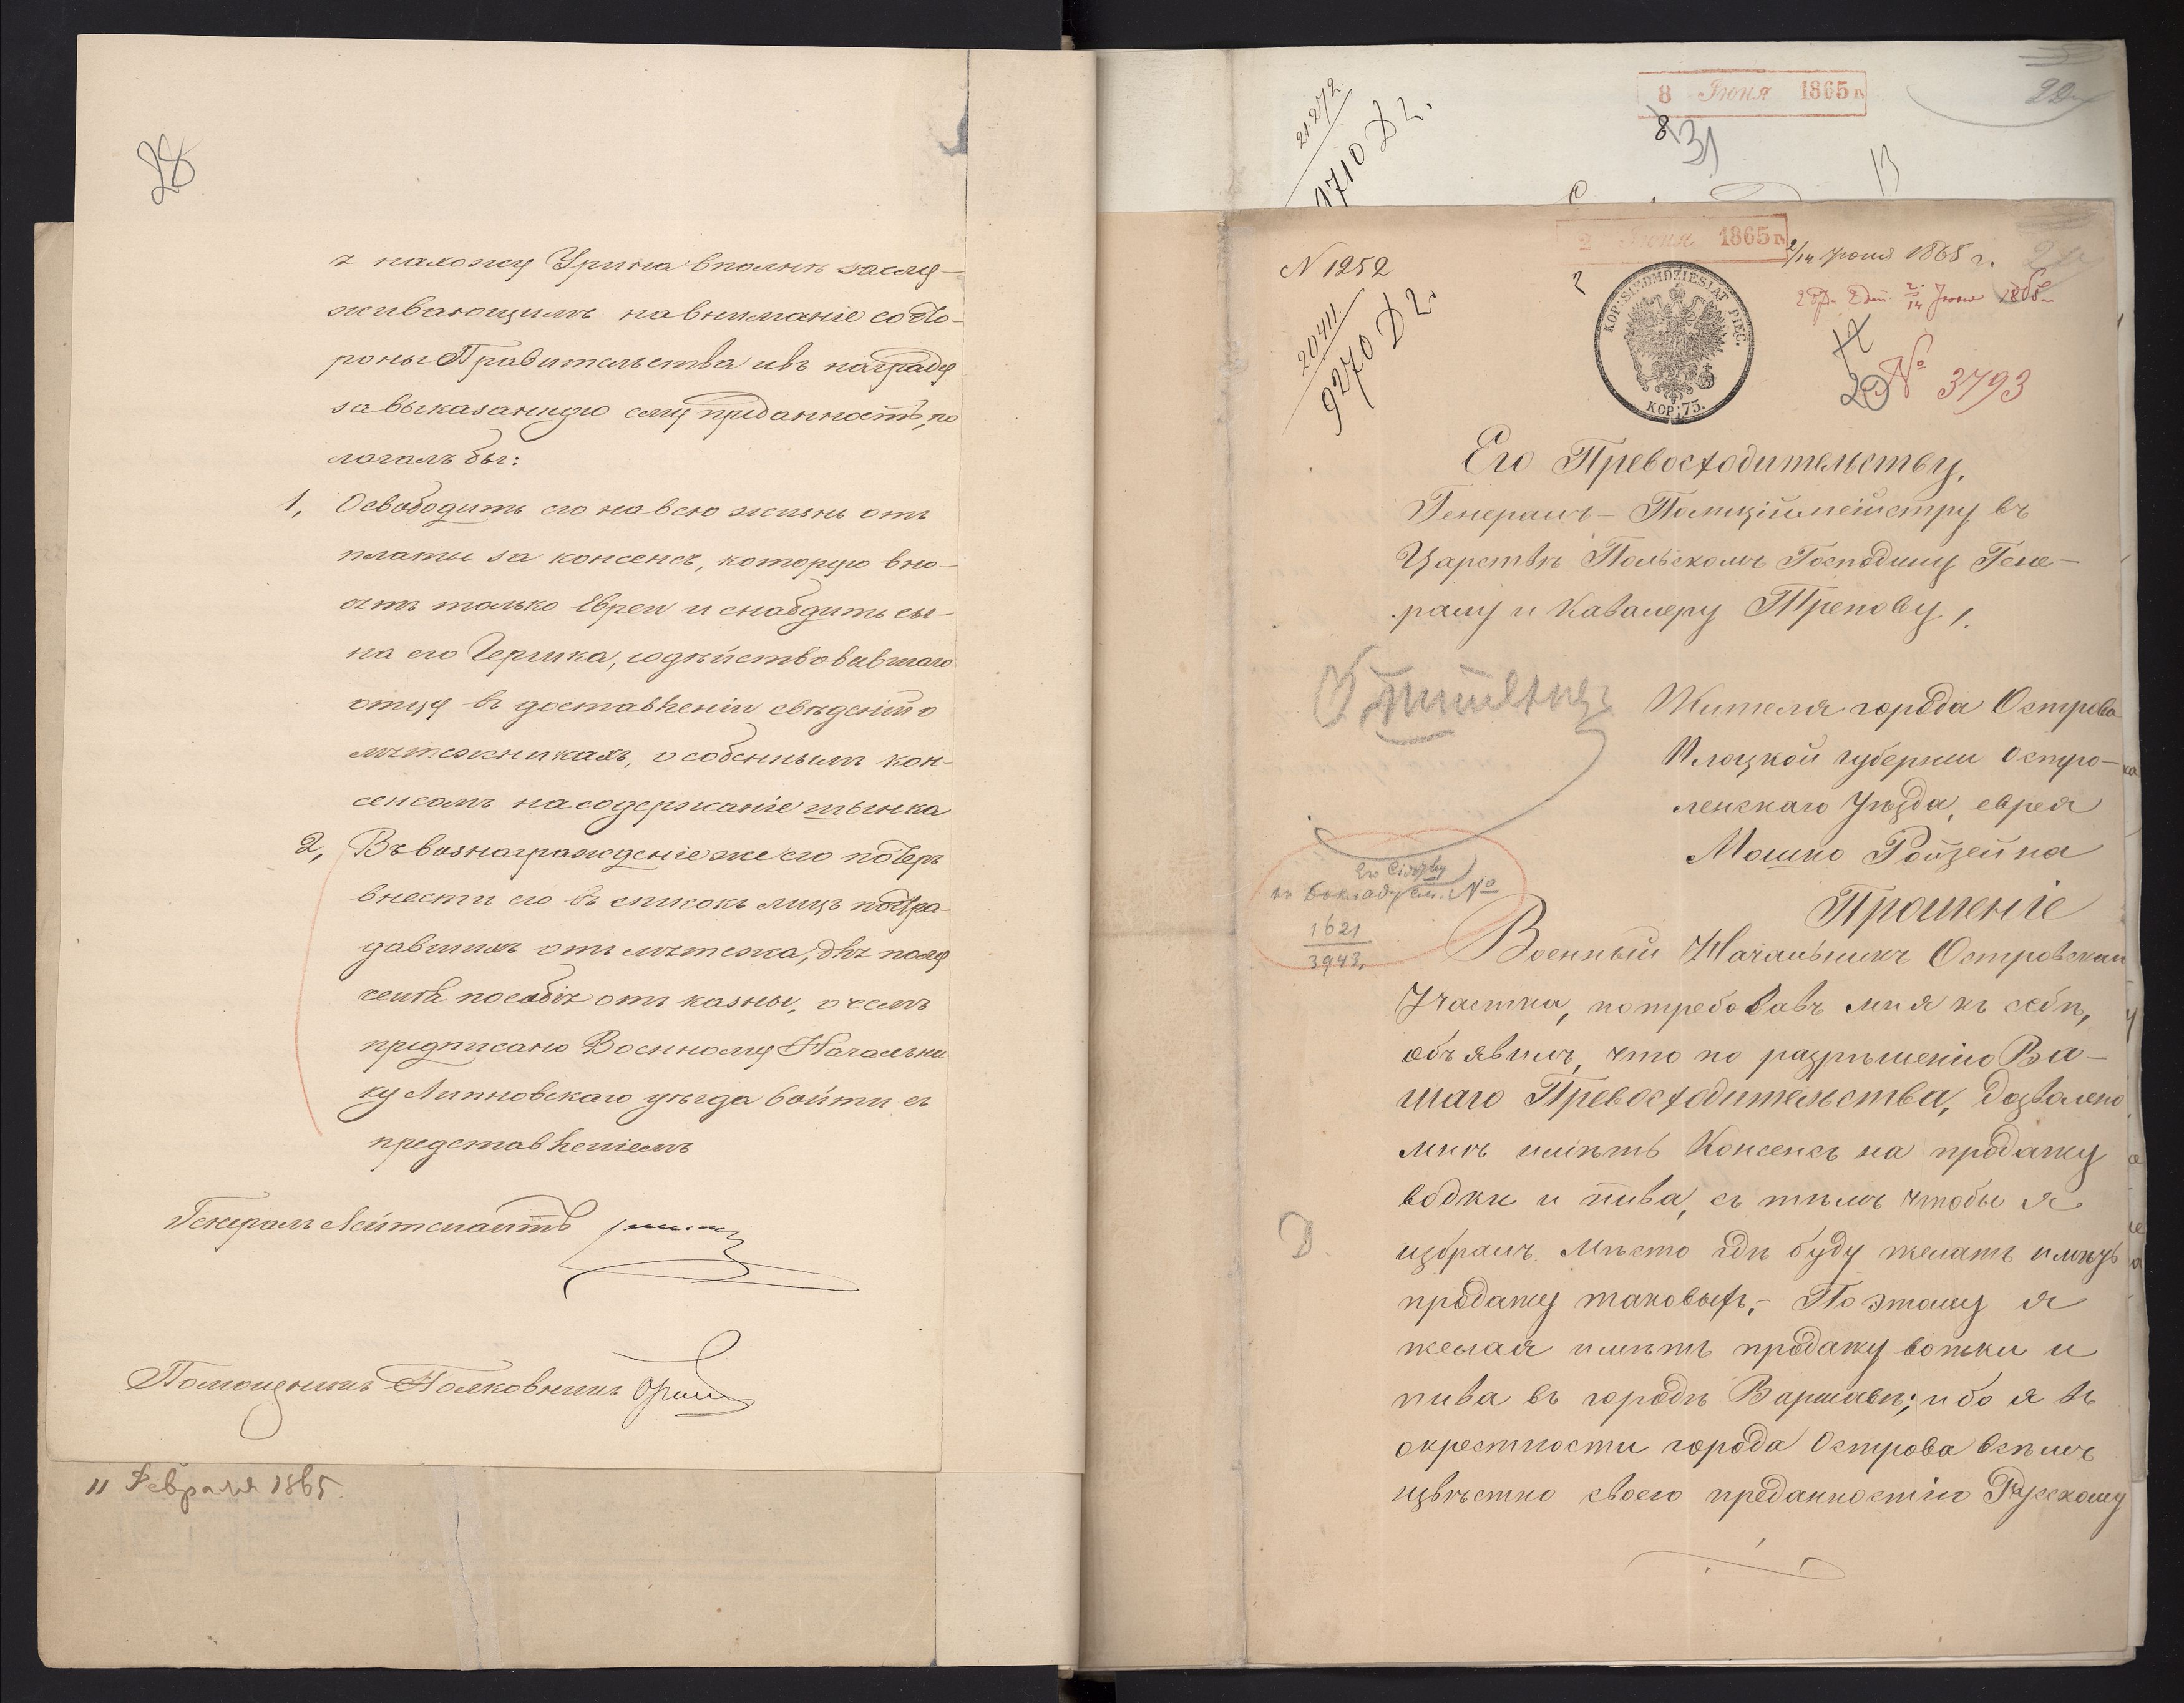 28
я нахожу Урина вполнѣ заслу-
живающимъ на вниманіе со сто-
роны Правительства и въ награду
за выказанную ему преданность, по
лагалъ бы:
1, Освободить его на всю жизнь отъ
платы за консенсъ, которую вно-
сятъ только Евреи и снабдить сы-
на его Гершка, содѣйствовавшаго
отцу въ доставленіи свѣденій о
мятежникахъ, особеннымъ кон-
сенсомъ на содержаніе шынка
2, Въ вознагражденіе же его потерь
внести его въ списокъ лицъ постра-
давшихъ отъ мятежа, для полу
ченія пособія отъ казны, о чемъ
предписано Военному Начальни
ку Липновскаго уѣзда войти съ
представленіемъ
Генералъ Лейтенантъ
Помощникъ Полковникъ
11 Февраля 1865
8 Іюня 1865 г.
21272
1710 Д 2.
8
31
2 Іюня 1865 г.
2/14 Іюня 1865 г.
N 1252
20411
9270 Д 2.
КОР: SIEDMDZIESIAT PIĘC.
КОР: 75.
2/14 Іюня 1865
20
№ 3793
Его Превосходительству,
Генералъ-Полиціймейстру въ
Царствѣ Польскомъ Господину Гене-
ралу и Кавалеру Трепову 1.
Жителя города Острова
Плоцкой губерніи Остро-
ленскаго Уѣзда, еврея
Мошко Ройзейна
Прошеніе
къ докладу см. №
1621
3943.
Военный Начальникъ Островскаго
Участка, потребовавъ мня къ себѣ,
объявилъ, что по разрѣшенію Ва-
шаго Превосходительства, дозволено
мнѣ имѣть Консенсъ на продажу
водки и пива, съ тѣмъ чтобы я
избралъ мѣсто гдѣ буду желать имѣть
продажу таковыхъ,- По этому я
желая имѣть продажу вотки и
пива въ городѣ Варшавѣ; ибо я въ
окрестности города Острова всѣмъ
извѣстно своего преданностію Русскому